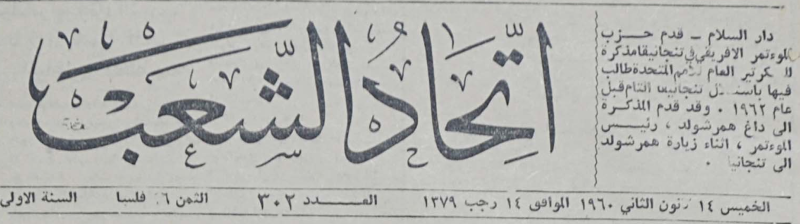 دار السلام ـ قدم حزب
المؤتمر الافريقي في تنجانيقا مذكرة
للسكرتير العام للأمم المتحدة طالب
فيها باستقلال تنجانيقا التام قبل
عام ١٩٦٢ . وقد قدم المذكرة
الى داغ همرشولد ، رئيس
المؤتمر ، اثناء زيارة همرشولد
الى تنجانيقا .
اتّحاد الشّعب
الخميس ١٤ كانون الثاني ١٩٦٠ الموافق ١٤ رجب ١٣٧٩ العدد ٣٠٢ الثمن ١٦ فلسا السنة الاولى